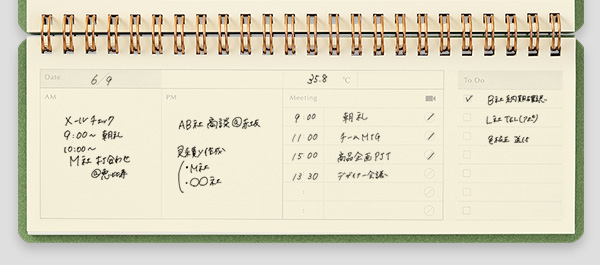 Date 6/9 35.8 ℃
AM
メールチェック
9:00〜 朝礼
10:00〜
M社 打合わせ
@恵比寿
PM
AB社 商談@赤坂
見積り作成
・M社
・○○社
Meeting
9 00 朝礼
11 00 チームMTG
15 00 商品企画PJT
13 30 デザイナー会議
To Do
✓ B社 納期確認
L社 TEL(アポ)